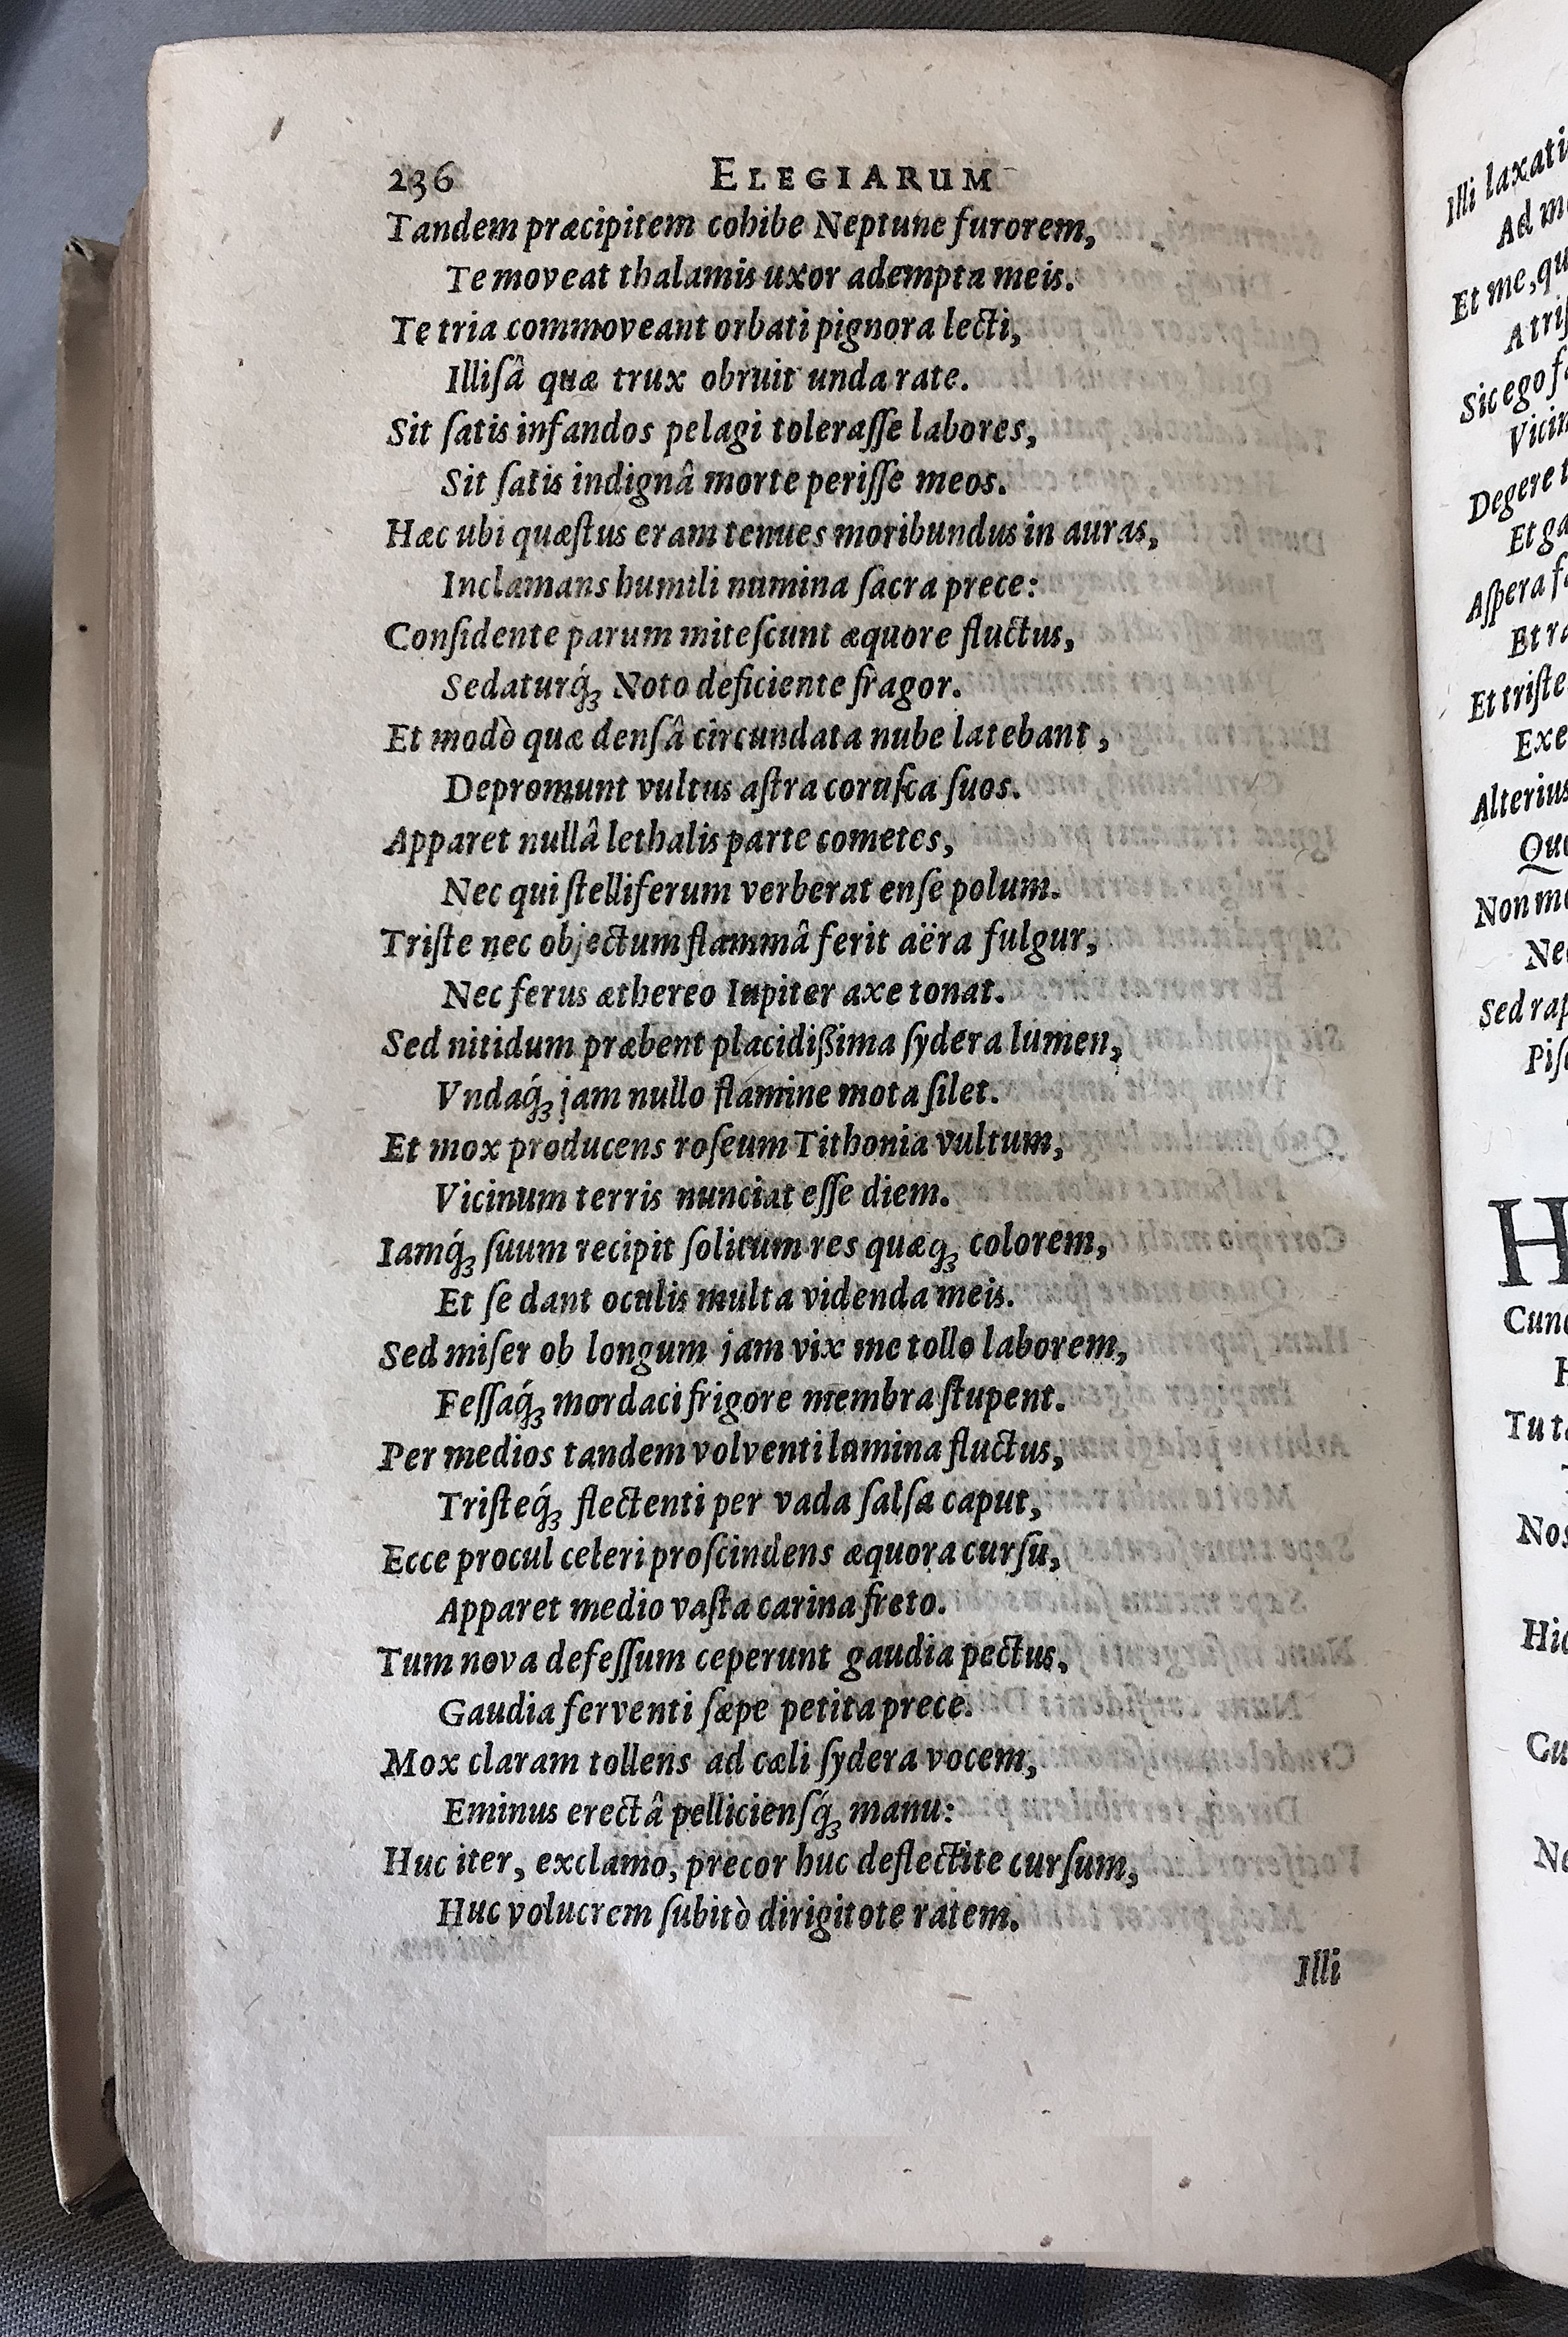 236 ELEGIARUM
Tandem præcipitem cohibe Neptune furorem,
Te moveat thalamis uxor adempta meis.
Te tria commoveant orbati pignora lecti,
Illiſâ quæ trux obruit unda rate.
Sit ſatis infandos pelagi toleraſſe labores,
Sit ſatis indignâ morte periſſe meos.
Hæc ubi quæſtus eram tenues moribundus in auras,
Inclamans humili numina ſacra prece:
Conſidente parum miteſcunt æquore fluctus,
Sedaturq́ꝫ Noto deficiente fragor.
Et modò quæ denſâ circundata nube latebant,
Depromunt vultus aſtra coruſca ſuos.
Apparet nullâ lethalis parte cometes,
Nec qui ſtelliferum verberat enſe polum.
Triſte nec objectum flammâ ferit aëra fulgur,
Nec ferus æthereo Iupiter axe tonat.
Sed nitidum præbent placidißima ſydera lumen,
Vndaq́ꝫ jam nullo flamine mota ſilet.
Et mox producens roſeum Tithonia vultum,
Vicinum terris nunciat eſſe diem.
Iamq́ꝫ ſuum recipit ſolitum res quæqꝫ colorem,
Et ſe dant oculis multa videnda meis.
Sed miſer ob longum jam vix me tollo laborem,
Feſſaq́ꝫ mordaci frigore membra ſtupent.
Per medios tandem volventi lumina fluctus,
Triſteq́ꝫ flectenti per vada ſalſa caput,
Ecce procul celeri proſcindens æquora curſu,
Apparet medio vaſta carina freto.
Tum nova defeſſum ceperunt gaudia pectus,
Gaudia ferventi ſæpe petita prece.
Mox claram tollens ad cæli ſydera vocem,
Eminus erectâ pellicienſq́ꝫ manu:
Huc iter, exclamo, precor huc deflectite curſum,
Huc volucrem ſubitò dirigitote ratem.
Illi
Illi laxati
Ad m
Et me, qu
A triſ
Sic ego f
Vicin
Degere t
Et ga
Aſpera f
Et ra
Et triſte
Exe
Alterius
Que
Non me
Ne
Sed rap
Piſ
H
Cunc
H
Tu t
Nos
Hic
Cu
Ne